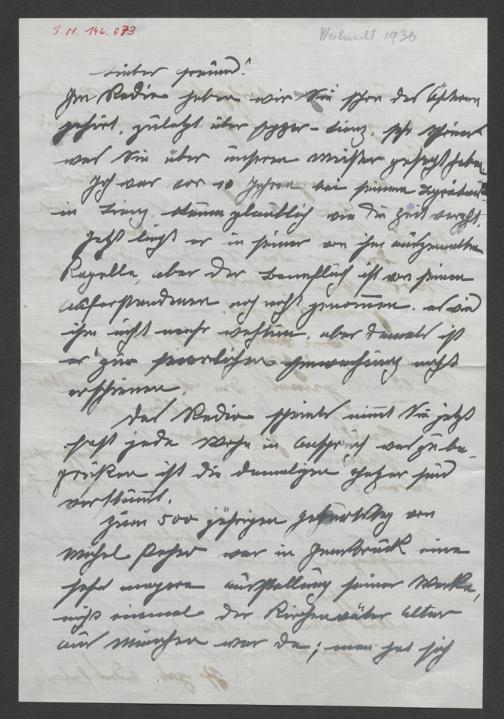 I.N. 146.073
Weihnacht 1936
Lieber Freund!
Im Radio haben wir Sie schon des Öfteren
gehört, zuletzt über Egger-Lienz. Sehr schön
was Sie über unseren Meister gesagt haben.
Ich war vor 10 Jahren bei seinem Begräbnis
in Lienz, kaum glaublich wie die Zeit vergeht.
Jetzt liegt er in seiner von ihm ausgemalten
Kapelle, aber der Bannfluch ist von seinem
Auferstandenen noch nicht genommen. Es wird
ihm nicht mehr wehtun, aber damals ist
er zur feierlichen Einweihung nicht
erschienen.
Das Radio scheints nimmt Sie jetzt
fast jede Woche in Anspruch was zu be-
grüßen ist die damaligen Hetzer sind
verstummt.
Zum 500 jährigen Geburtstag von
Michel Pacher war in Innsbruck eine
sehr magere Ausstellung seiner Werke,
nicht einmal der Kirchenväter Altar
aus München war da; man hat sich